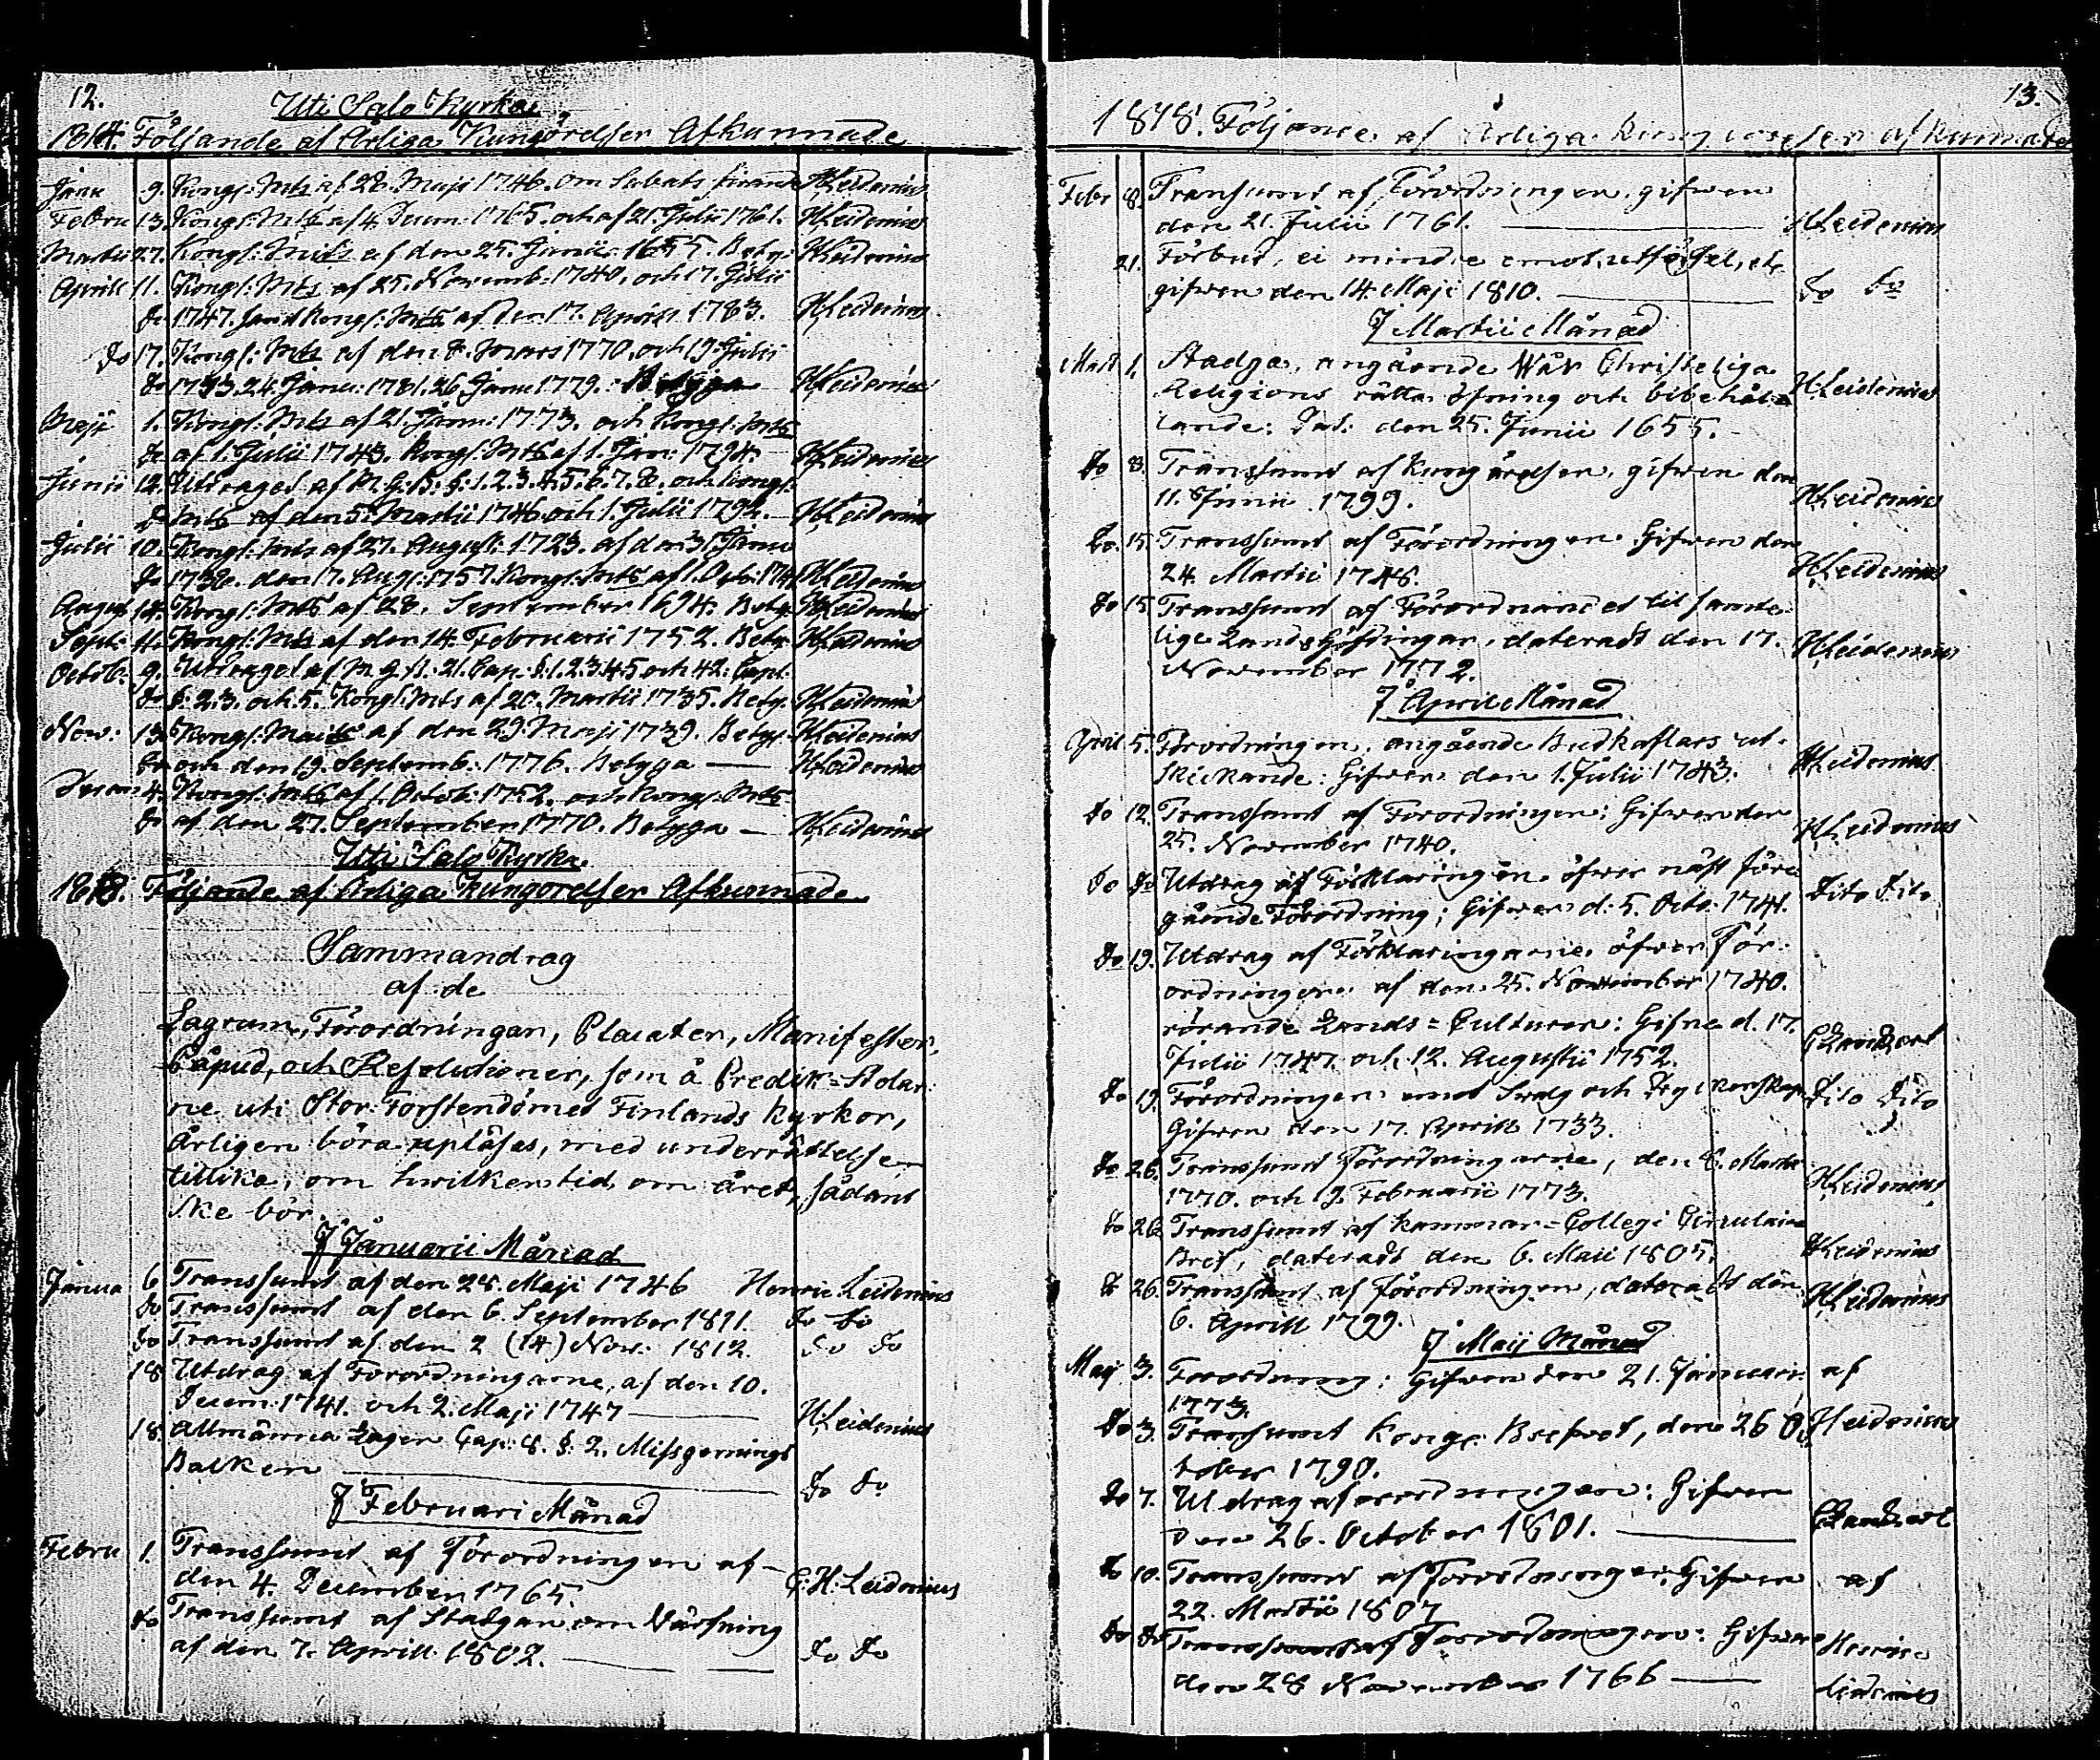 12.
Uti Salo Kyrka
1814. Följande af Årliga Kungörelser Afkunnade
Janu 9. Kongl: Mts af 28. Maji 1746. om Sabats firande HLeidenius
Febru 13. Kongl: Mts af 4. Decem: 1765. och af 21. Julii 1761. HLeidenius
Martii 27. Kongl: Mts af den 25. Junii 1655. Betyg: HLeidenius
Aprill 11. Kongl: Mts af 25. Novemb: 1740. och 17. Julii
do 1747. samt Kongl: Mts af den 17. Aprill 1783. HLeidenius
do 17. Kongl: Mts af den 8. Mars 1770. och 19. Julii
do 1793. 24. Janu: 1781. 26. Janu 1779. Betyga HLeidenius
Maji 1. Kongl: Mts af 21. Janu: 1773. och Kongl: Mts
do af 1. Julii 1743. Kongl: Mts af 1. Jan: 1794. HLeidenius
Junii 12. Utdraget af M. G. B: §: 1. 2. 3. 4. 5. 6. 7. 8. och Kongl:
do Mts af den 5. Martii 1746. och 1. Julii 1792. HLeidenius
Julii 10. Kongl: Mts af 27. August: 1723. af den 31. Janu
do 1738. den 17. Aug: 1757. Kongl: Mts af 1. Octb: 174 HLeidenius
August 14. Kongl: Mts af 28. September 1694. Betyg HLeidenius
Sept: 11. Kongl: Mts af den 14. Februarii 1752. Betyg HLeidenius
Octob: 9. Utdraget af M. G. B: 21. Cap: §. 1. 2. 3. 4. 5 och 42. Capt:
do §: 2. 3. och 5. Kongl: Mts af 20. Martii 1735. Betyg: HLeidenius
Now: 13. Kongl: Maits af den 29. Maji 1739. Betyg: HLeidenius
do och den 19. Septemb: 1776. Betyga — HLeidenius
Decem 4. Kongl: Mts af 1. Octob: 1752. och Kongl: Mts
do af den 27. September 1770. Betyga — HLeidenius
Uti Salo Kyrka.
1818. Följande af Årliga Kungörelser Afkunnade.
Sammandrag
af de
Lagrum, Förordningar, Placater, Manifester,
Påbud, och Resolutioner, som å Predik=Stolar=
ne uti Stor: Förstendömet Finlands kyrkor,
Årligen böra upläsas, med underrättelse
tillika, om hwilken tid om året, sådant
ske bör.
J Januarii Månad
Janua 6 Transsumt af den 28. Maji 1746 Henric Leidenius
do Transsumt af den 6. September 1811. do do
do Transsumt af den 2 (14.) Nov: 1812. do do
18. Utdrag af Förordningarne, af den 10.
Decem: 1741. och 2. Maji 1747 — HLeidenius
18. Allmänna Lagen Cap: 8. §: 2. Missgernings
Balken — do do
J Februari Månad
Febru 1. Transsumt af Förordningen af
den 4. December 1765. G: H: Leidenius
do Transsumt af Stadgan om Värfning
af den 7. Aprill 1802. — do do
13.
1818. Följance af Årliga Kungörelser afkunnade
Febr 8. Transumt af Förordningen, gifwen
den 21. Julii 1761. — HLeidenius
21. Förbud, ei mindre emot utförsel, etc
gifwen den 14. Maji 1810. — do do
J Martii Månad
Mart 1. Stadga, angående Wår Christeliga
Religions rätta öfning och bibehål=
lande: Dat: den 25. Junii 1655. HLeidenius
do 8. Transsumt af kungörelsen, gifwen den
11. Junii 1799. HLeidenius
do. 15. Transsumt af Förordningen. Gifwen den
24. Martii 1748. HLeidenius
do 15. Transsumt af Förordnandet til samte=
lige Landshöfdingar, dateradt den 17.
November 1772. HLeidenius
J Aprill Månad
Aprill 5. Förordningen, angående Budkaflars ut=
skickande: Gifwen den 1. Julii 1743. HLeidenius
do 12. Transsumt af Förordningen: Gifwen den
25. November 1740. HLeidenius
do do Utdrag af Förklaringen öfwer näst före
gående Förordning; Gifwen d: 5. Octo: 1741. Dito Dito
do 19. Utdrag af Förklaringarne öfwer För=
ordningen af den 25. November 1740.
rörande Lands=Culturen: Gifne d. 17.
Julii 1747. och 12. Augustii 1752.
do 19. Förordningen emot Swalg och Dryckenskap Dito Dito
Gifwen den 17. Aprill 1733.
do 26. Transsumt Förordningarne, den 8. Martii
1770. och 19. Februarii 1773. HLeidenius
do 26. Transsumt af Kammar=Collegi Circulaire
Bref, dateradt den 6. Maii 1805. HLeidenius
do 26. Transsumt af förordningen, dateradt den
6. Aprill 1799. HLeidenius
J Maij Månad
Maij 3. Förordning: Gifwen den 21. Januari af
1773.
do 3. Transsumt Kongl: Brefwet, den 26 Oc HLeidenius
tober 1790.
do 7. Utdrag af förordningen: Gifwen
den 26. October 1801. —
do 10. Transsumt af Förordningen: Gifwen af
22. Martii 1807
do do Transsumt af Förordningen: Gifwen Henric
den 28 November 1766 — Leidenius